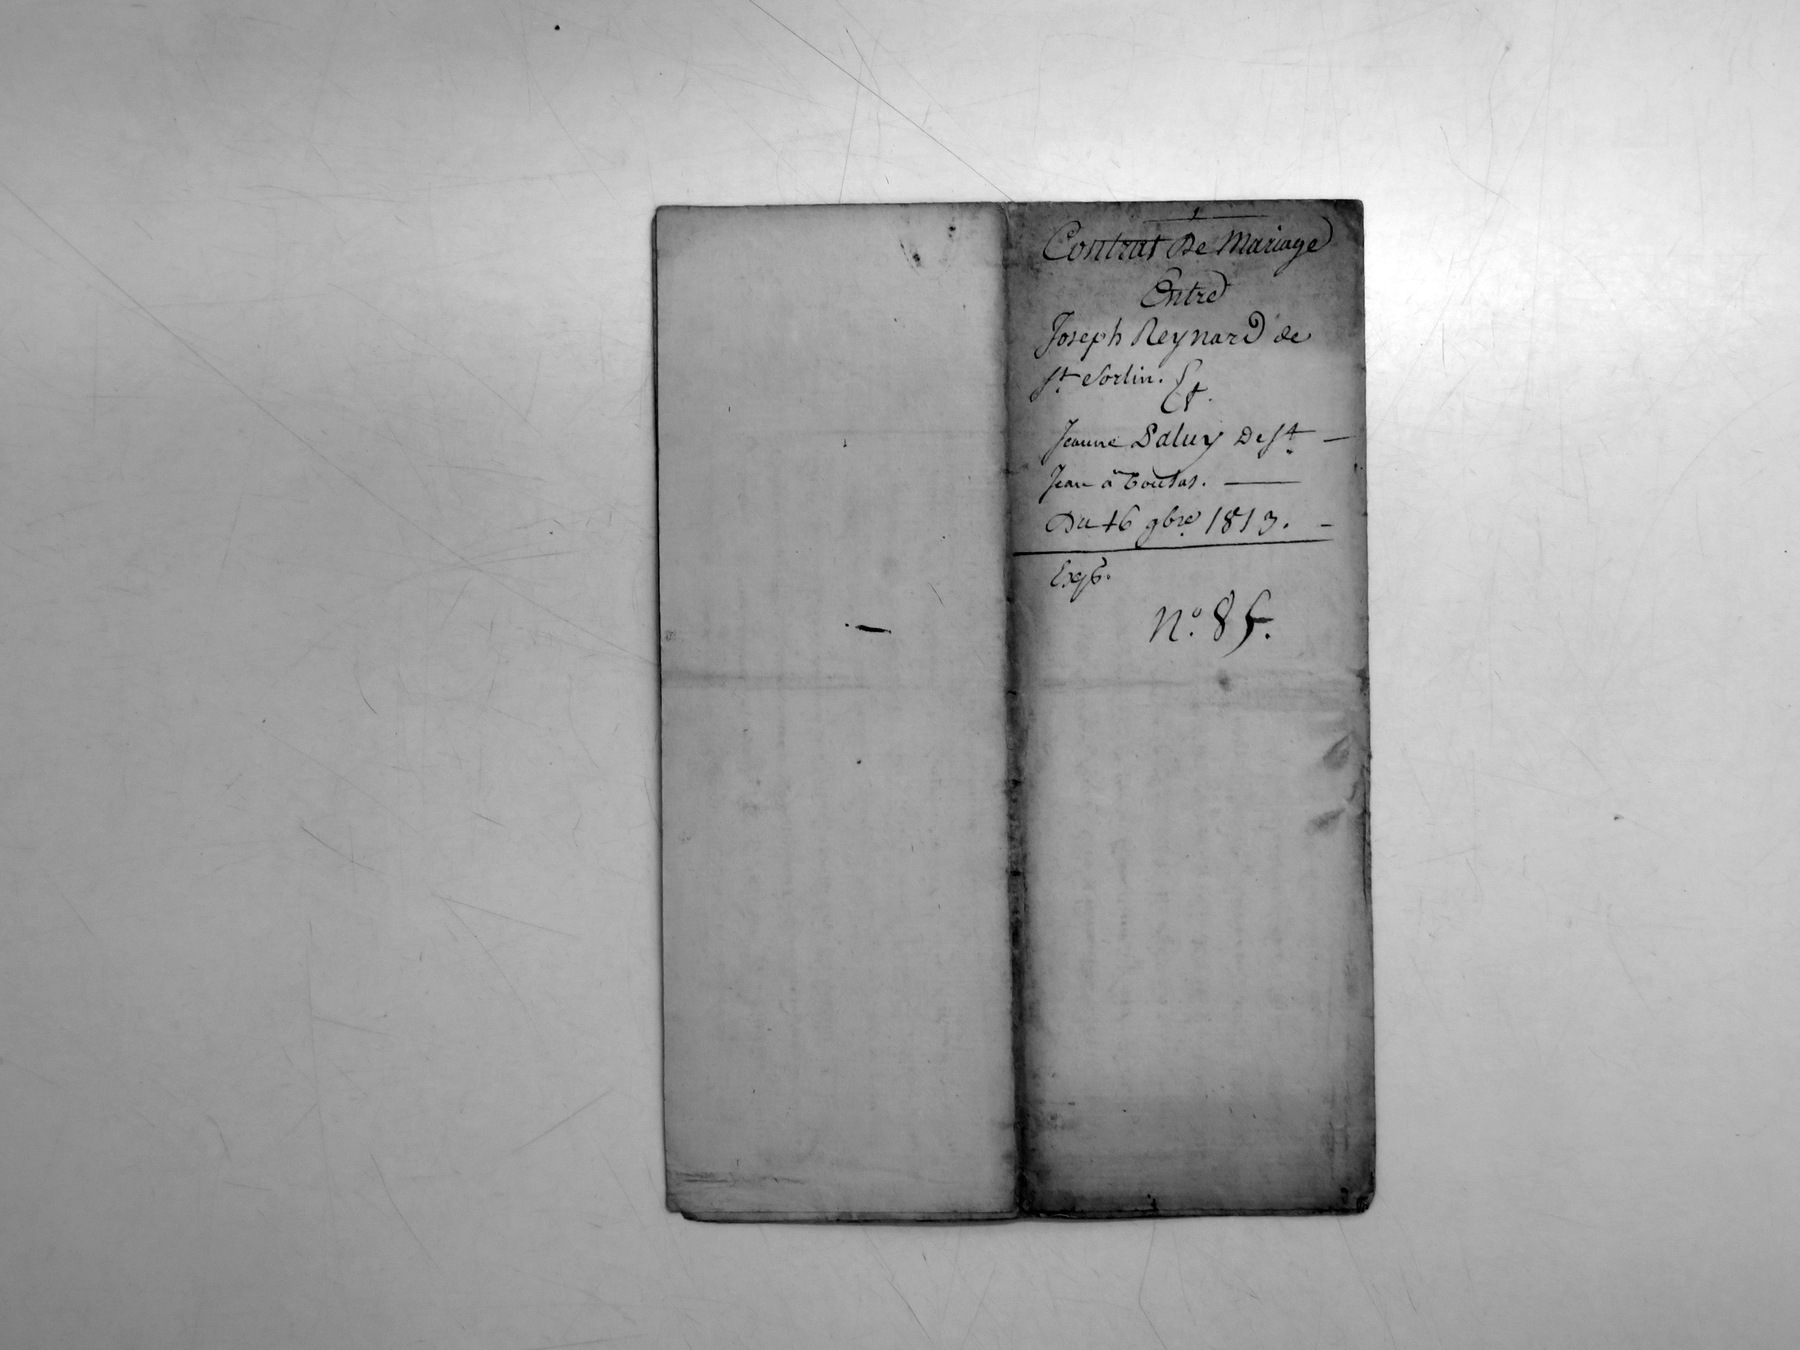 Contrat De Mariage
Entre
Joseph Reynard de
St Sorlin. Et.
Jeanne Paluy De St —
Jean à Toulas. —
Du 16 9bre 1813. —
Exp.
N.° 85.